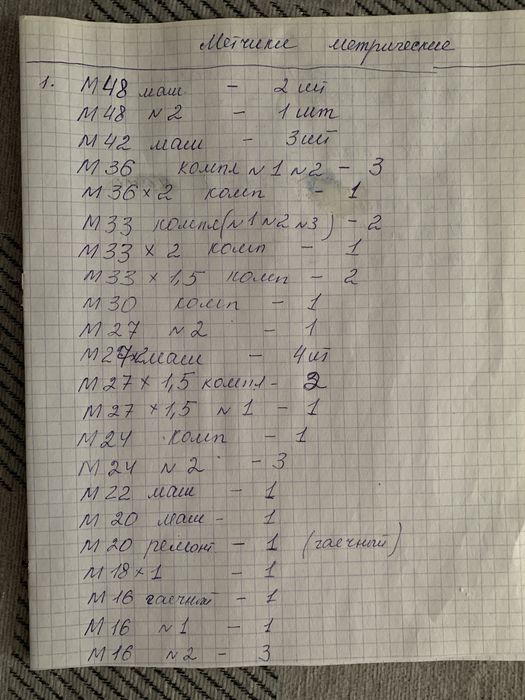 Метчики метрические
1. М48 маш - 2 шт
М48 №2 - 1 шт
М42 маш - 3 шт
М36 компл №1 №2 - 3
М36×2 комп - 1
М33 компл (№1 №2 №3) - 2
М33 × 2 комп - 1
М33 × 1,5 комп - 2
М30 комп - 1
М27 №2 - 1
М27×2 маш - 4 шт
М27 × 1,5 компл -
М27 × 1,5 №1 - 1
М24 комп - 1
М24 №2 - 3
М22 маш - 1
М20 маш - 1
М20 ремонт - 1 (гаечный)
М18×1 - 1
М16 гаечный - 1
М16 №1 - 1
М16 №2 - 3